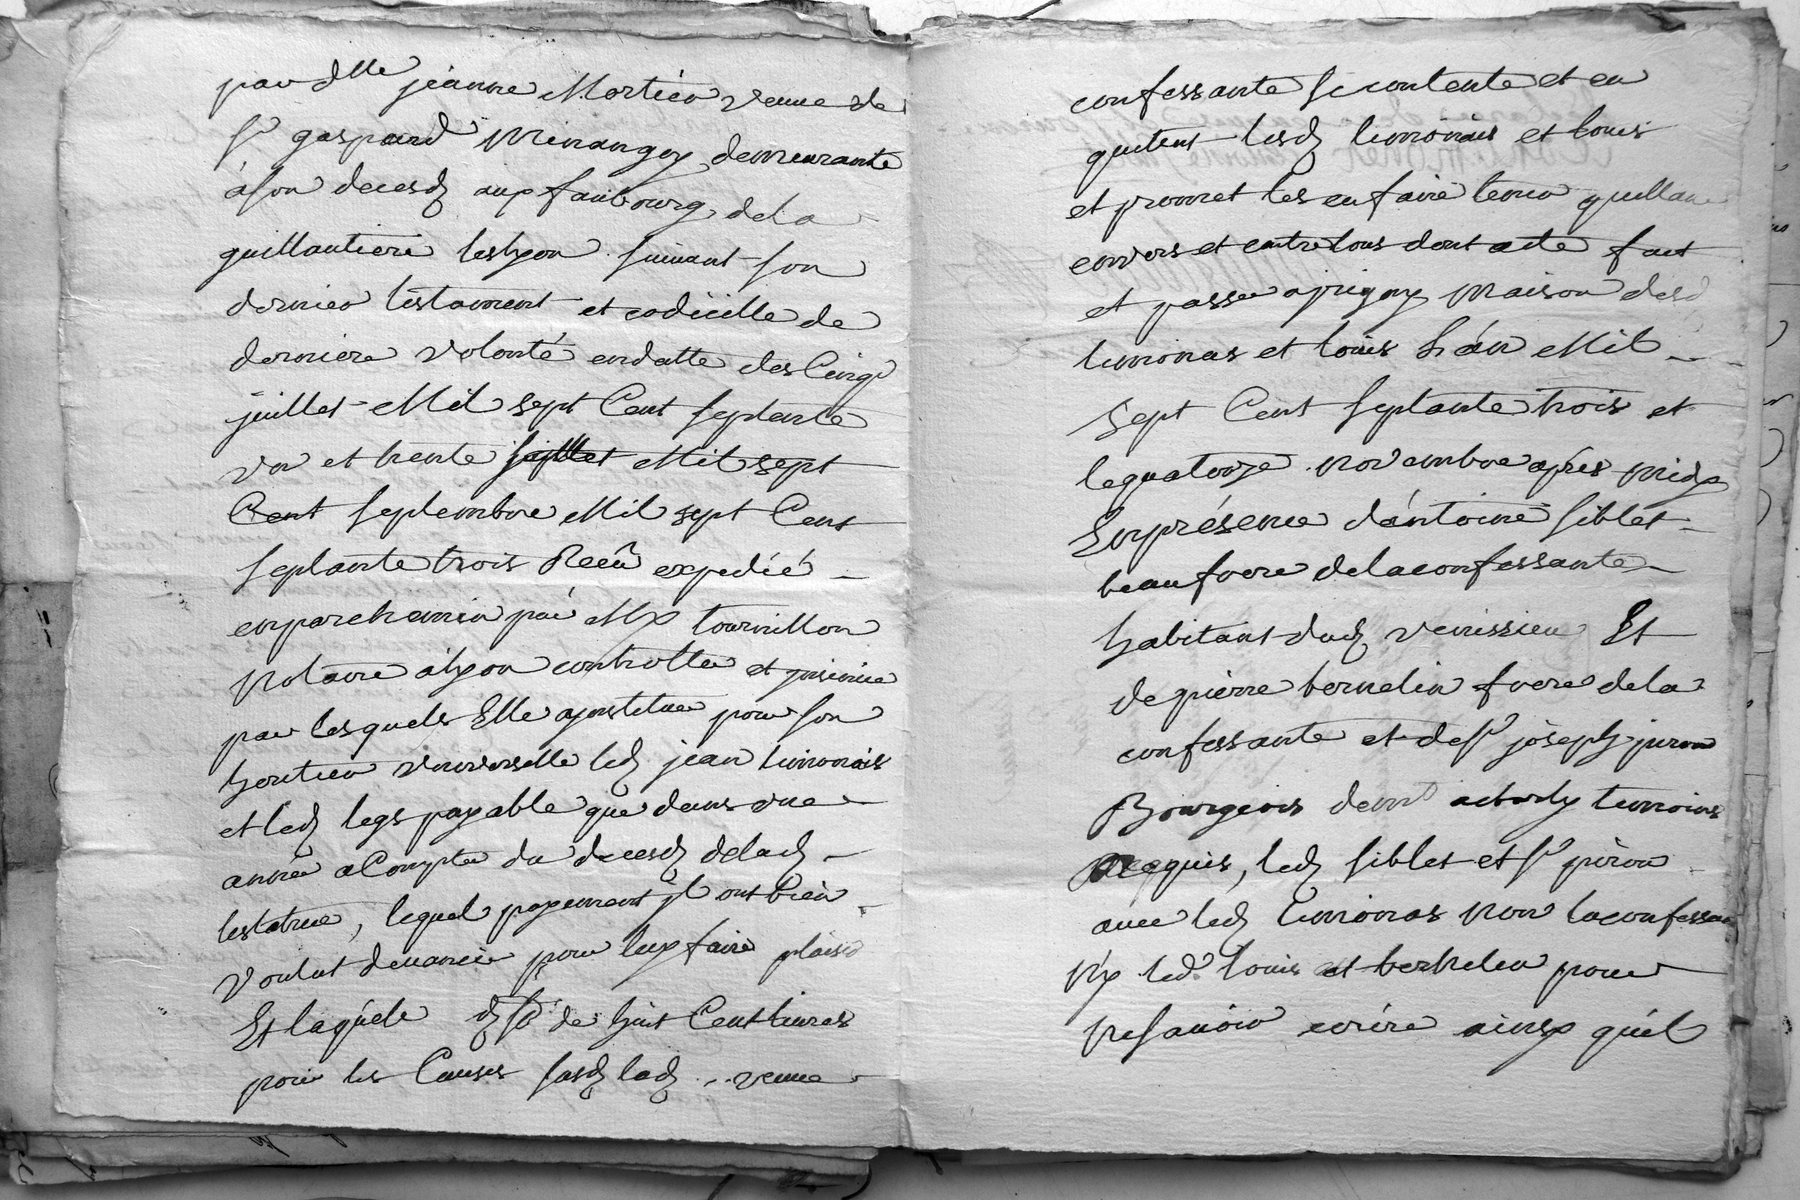 par dlle jeanne Mortier veuve de
sr gaspard Minangoy demeurante
a son decesd aux faubourg de la
guillautiere les lyon suivant son
dernier testament et codicille de
derniere volonté en datte des Cinq
juillet Mil sept Cent septante
un et trente Mil sept
Cent septembre Mil sept Cent
septante trois Receu expedié
en parchemin par Me tournillon
Notaire a lyon controllé et insinué
par lesquels Elle a jnstitué pour son
heritier universelle led jean limonas
et led legs payable que dans une
année a Compter du decesd de lad
testatrice, lequel payement jl ont bien
voulut devancer pour luy faire plaisir
Et laquele de huit Cent livres
pour les Causes susd lad veuve
confessante se contente et en
quitent lesd limonas et louis
et promet les en faire tenir quittane
envers et contre tous dont acte fait
et passé a jrigny Maison desd
limonas et louis L'án Mil
sept Cent septante trois et
le quatorze novembre aprés midy
En présence d'antoine siblet
beaufrere de la confessante
habitant dud venissieu Et
de pierre bernelin frere de la
confessante et de sr joseph piron
Bourgeois temoins
Requis, led siblet et sr piron
avec led limonas Non la confessan
Ny led louis et berhelin pour
ne savoir ecrire ainsy qu'il